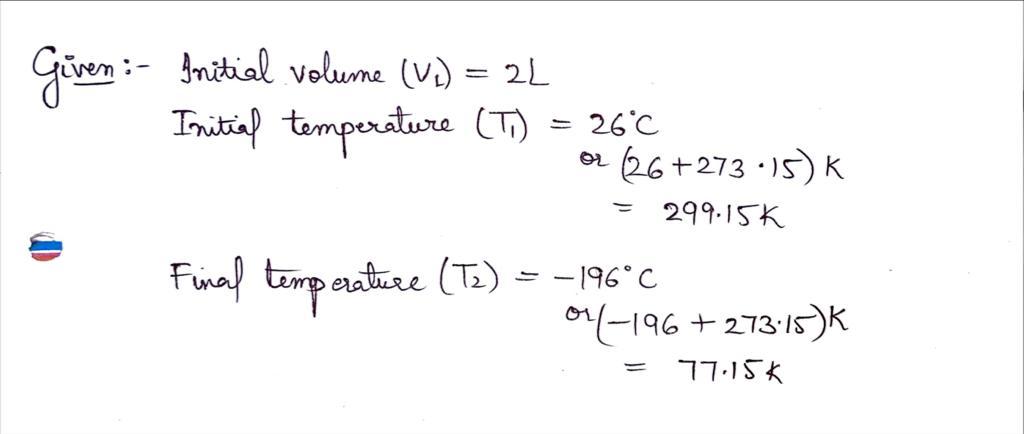 Given :- Initial volume (V₁) = 2L
Initial temperature (T₁) = 26°C
or (26 + 273.15) K
= 299.15K
Final temperature (T₂) = -196°C
or (-196 + 273.15)K
= 77.15K